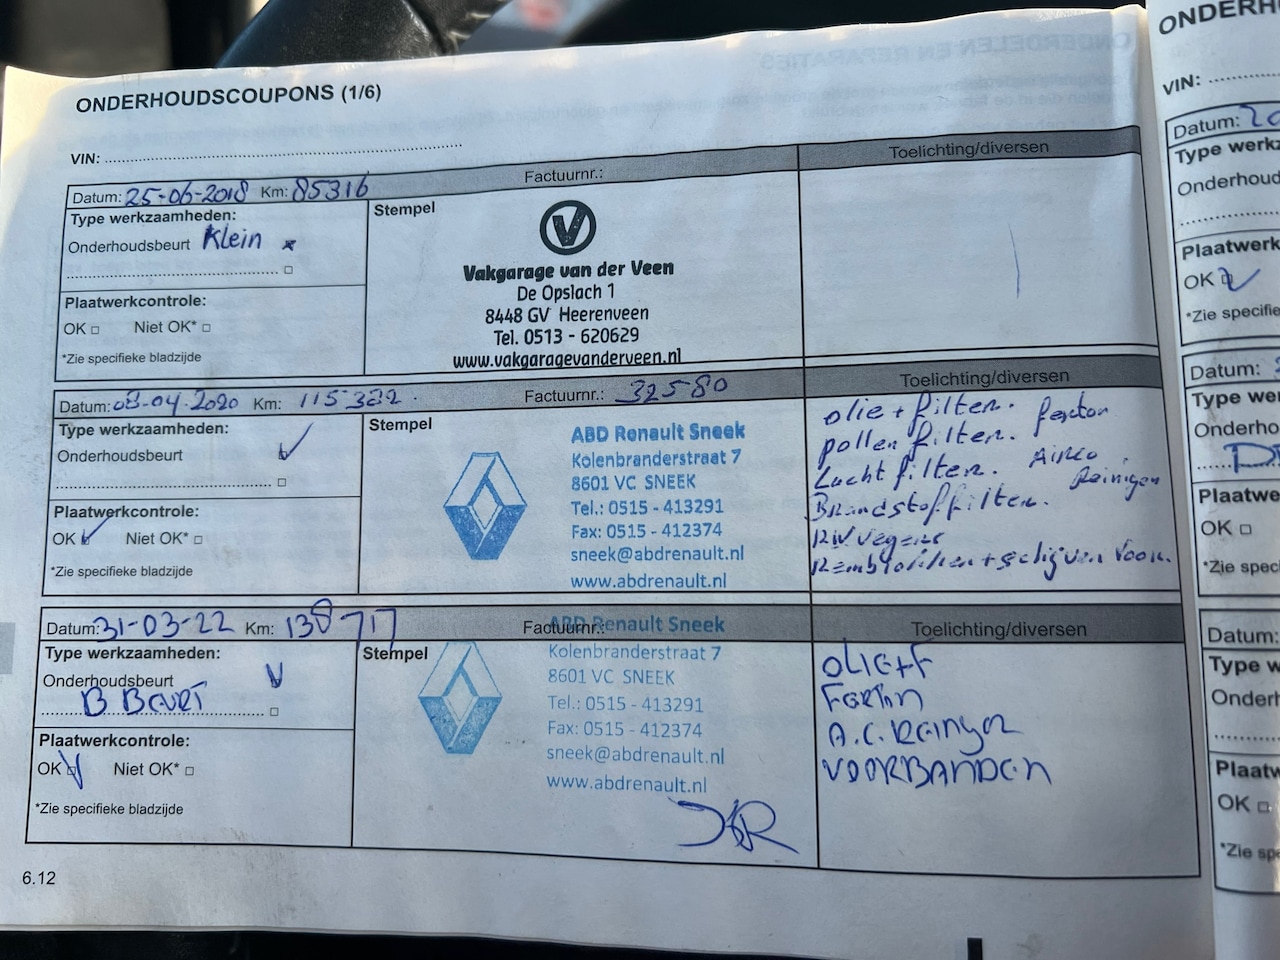 ONDERHOUDSCOUPONS (1/6)
VIN:
Toelichting/diversen
Datum: 25-06-2018 Km: 85316 Factuurnr.:
Type werkzaamheden:
Onderhoudsbeurt Klein
Plaatwerkcontrole:
OK □ Niet OK* □
*Zie specifieke bladzijde
Stempel
V
Vakgarage van der Veen
De Opslach 1
8448 GV Heerenveen
Tel. 0513 - 620629
www.vakgaragevanderveen.nl
Datum: 08-04-2020 Km: 115322 Factuurnr.: 32580 Toelichting/diversen
Type werkzaamheden:
Onderhoudsbeurt
Plaatwerkcontrole:
OK Niet OK* □
*Zie specifieke bladzijde
Stempel
ABD Renault Sneek
Kolenbranderstraat 7
8601 VC SNEEK
Tel.: 0515 - 413291
Fax: 0515 - 412374
sneek@abdrenault.nl
www.abdrenault.nl
olie + filter.
pollenfilter.
Luchtfilter. Airco
Reinigen
Brandstoffilter.
Remblokken + schijven voor.
Datum: 31-03-22 Km: 138717 Factuurnr.: Toelichting/diversen
Type werkzaamheden:
Onderhoudsbeurt
B Beurt
Plaatwerkcontrole:
OK Niet OK* □
*Zie specifieke bladzijde
Stempel
ABD Renault Sneek
Kolenbranderstraat 7
8601 VC SNEEK
Tel.: 0515 - 413291
Fax: 0515 - 412374
sneek@abdrenault.nl
www.abdrenault.nl
OLIE+F
A.C. Reiniger
VOORBANDEN
6.12
ONDERH
VIN:
Datum: 20
Type werkz
Onderhoud
Plaatwerk
OK
*Zie specifie
Datum:
Type wer
Onderho
Plaatwe
OK □
*Zie spec
Datum:
Type w
Onderh
Plaatw
OK □
*Zie spe